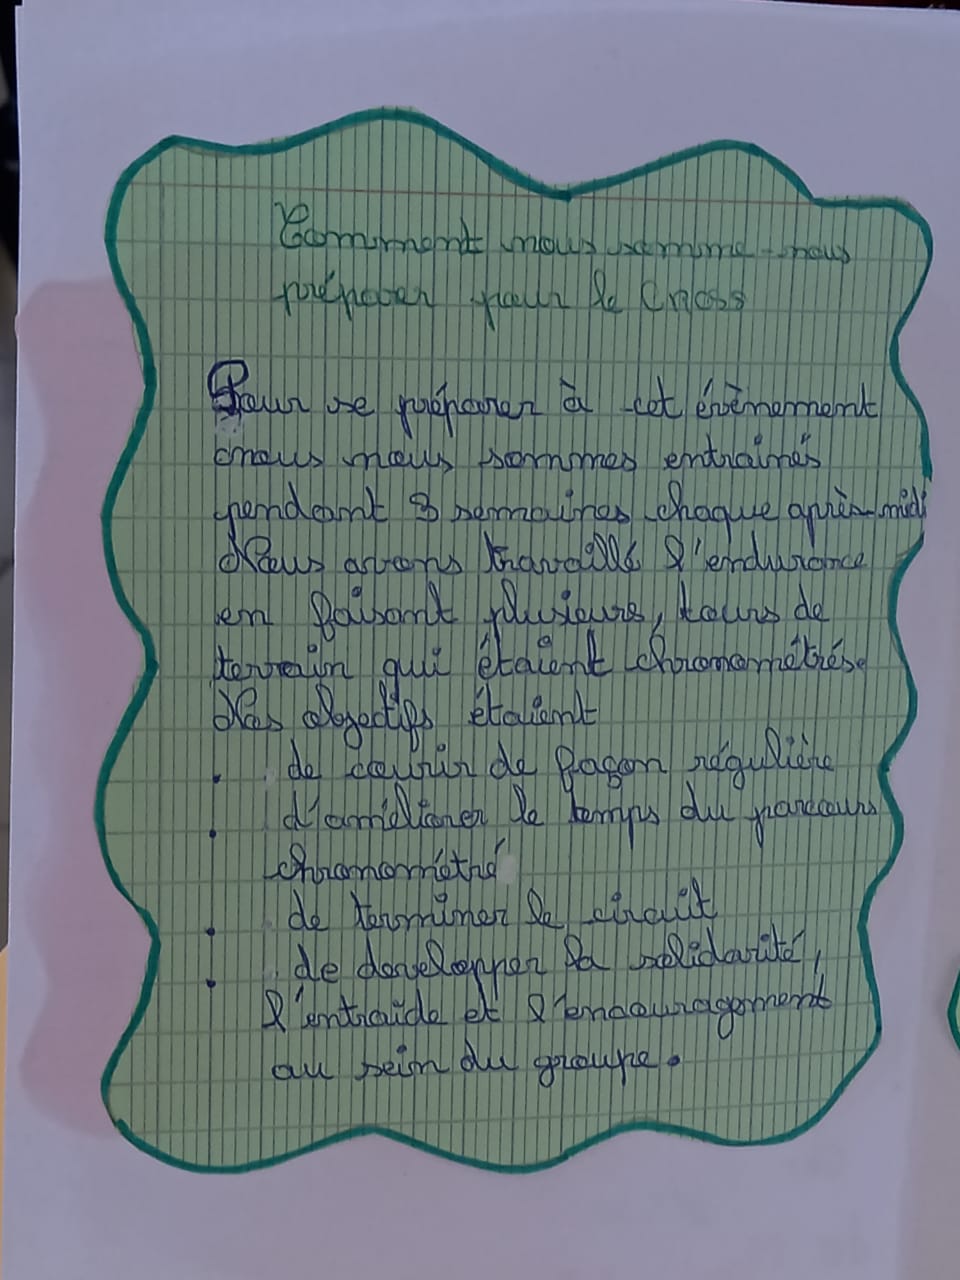 Comment nous somme-nous
préparer pour le Cross
Pour se préparer à cet évènement
nous nous sommes entrainés
pendant 3 semaines chaque après-midi
Nous avons travaillé l'endurance
en faisant plusieurs, tours de
terrain qui étaient chronométrés.
Nos objectifs étaient
. de courir de façon régulière
. d'améliorer le temps du parcours
chronométré
. de terminer le circuit
. de developper la solidarité,
l'entraide et l'encouragement
au sein du groupe.